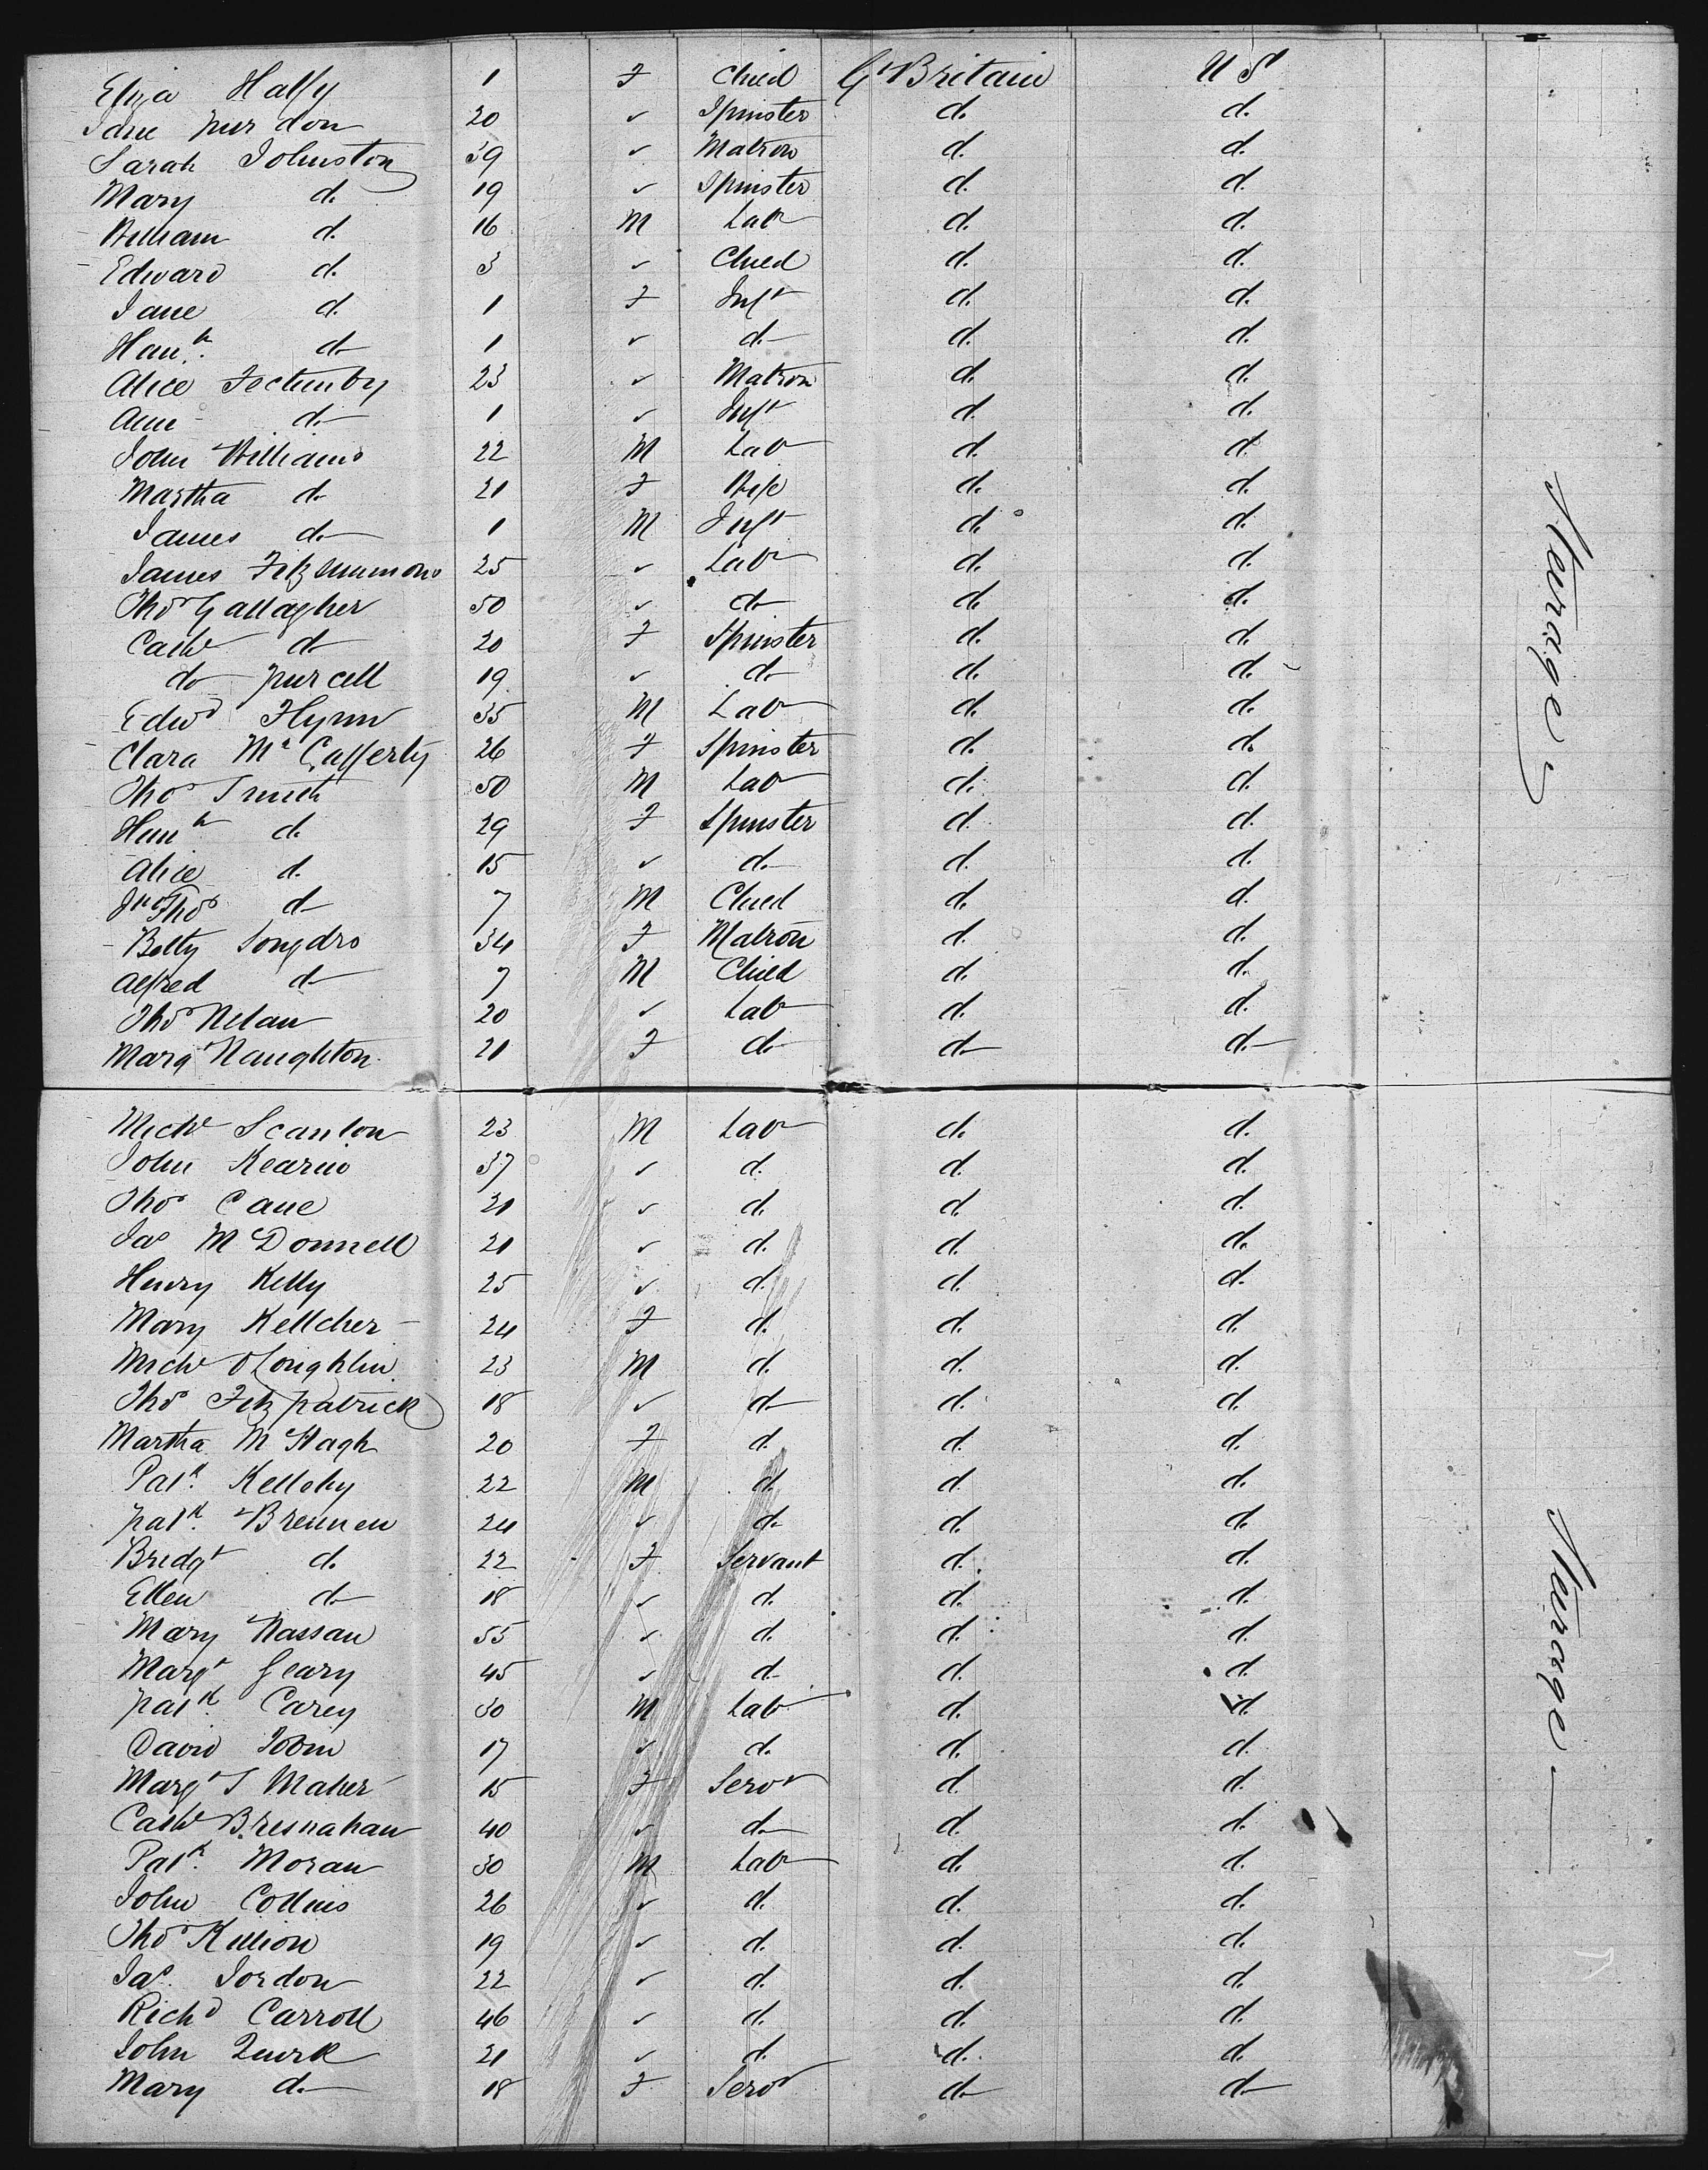 Eliza Hally 1 F Child Gt Britain U S
Jane Purdon 20 " Spinster d. d.
Sarah Johnston 39 " Matron d. d.
Mary d. 19 " Spinster d. d.
William d. 16 M Labr d. d.
Edward d. 3 " Child d. d.
Jane d. 1 F Inft d. d.
Hanh d. 1 " d. d. d.
Alice 23 " Matron d. d.
Ann d. 1 " Inft d. d.
John Williams 22 M Labr d. d.
Martha d. 21 F Wife d. d.
James d. 1 M Inft d. d.
James Fitzsimmons 25 " Labr d. d.
Thos Gallagher 50 " d. d. d.
Cathe d. 20 F Spinster d. d.
do Purcell 19 " d. d. d.
Edwd Flynn 35 M Labr d. d.
Clara McCafferty 26 F Spinster d. d.
Thos Smith 50 M Labr d. d.
Hanh d. 29 F Spinster d. d.
Alice d. 15 " d. d. d.
Jno Thos d. 7 M Child d. d.
Betty 34 F Matron d. d.
Alfred d. 7 M Child d. d.
Thos Nelan 20 " Labr d. d.
Marg Naughton 21 F d. d. d.
Steerage
Michl Scanlon 23 M Labr d. d.
John Kearns 37 " d. d. d.
Thos Cane 21 " d. d. d.
Jas McDonnell 21 " d. d. d.
Henry Kelly 25 " d. d. d.
Mary Kellcher 24 F d. d. d.
Michl OLoughlin 23 M d. d. d.
Thos Fitzpatrick 18 " d. d. d.
Martha McHagh 20 F d. d. d.
Patk Kellehy 22 M d. d. d.
Patk Brennen 24 " d. d. d.
Bridgt d. 22 F Servant d. d.
Ellen d. 18 " d. d. d.
Mary Nassau 55 " d. d. d.
Margt Geary 45 " d. d. d.
Patk Carey 30 M Labr d. d.
David Tobin 17 " d. d. d.
Margt J Maher 15 F Servt d. d.
Cathe Bresnahan 40 " d. d. d.
Patk Moran 30 M Labr d. d.
John Collins 26 " d. d. d.
Thos Killion 19 " d. d. d.
Jas Jordon 22 " d. d. d.
Richd Carroll 46 " d. d. d.
John Quirk 21 " d. d. d.
Mary d. 18 F Servt d. d.
Steerage